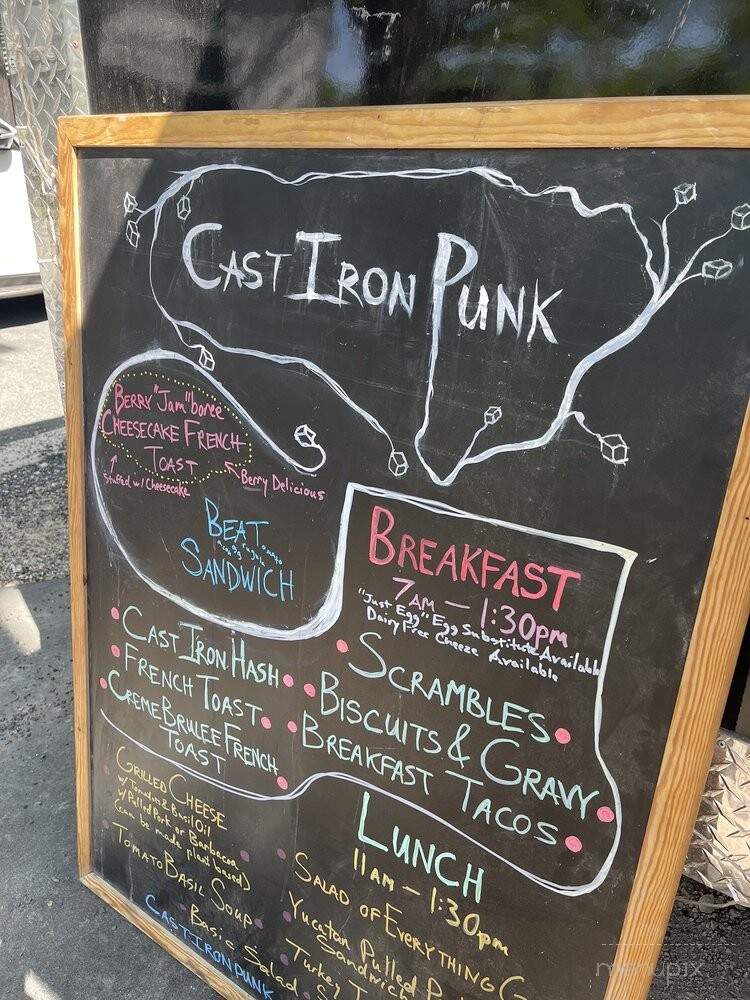 CAST IRON PUNK
BERRY "Jam"boree
CHEESECAKE FRENCH
TOAST
Stuffed w/ Cheesecake
Berry Delicious
BEAT
SANDWICH
BREAKFAST
7AM — 1:30pm
"Just Egg" Egg Substitute Available
Dairy Free Cheese Available
CAST IRON HASH
FRENCH TOAST
CREME BRULEE FRENCH
TOAST
SCRAMBLES
BISCUITS & GRAVY
BREAKFAST TACOS
GRILLED CHEESE
w/ Tomatoes & Basil Oil
w/ Pulled Pork or Barbacoa
(can be made plant based)
TOMATO BASIL SOUP
Basic Salad
CASTIRONPUNK
LUNCH
11AM — 1:30pm
SALAD OF EVERYTHING
Yucatan Pulled
Sandwich
Turkey
menupix